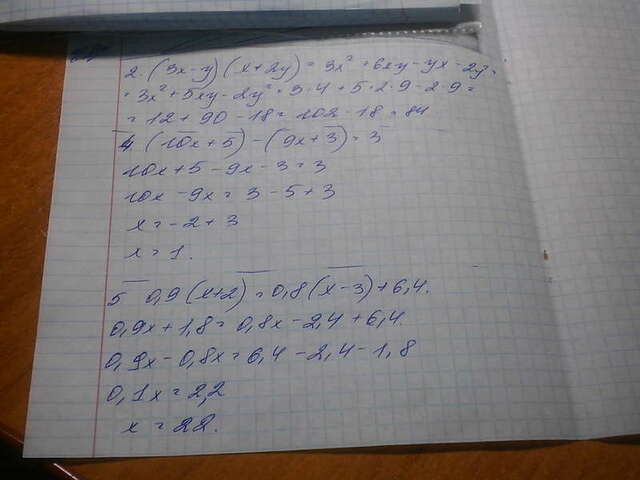 2. (3x-y)(x+2y) = 3x² + 6xy - yx - 2y² =
= 3x² + 5xy - 2y² = 3·4 + 5·2·9 - 2·9 =
= 12 + 90 - 18 = 102 - 18 = 84
4 (10x+5) - (9x+3) = 3
10x + 5 - 9x - 3 = 3
10x - 9x = 3 - 5 + 3
x = -2 + 3
x = 1.
5 0,9(x+2) = 0,8(x-3) + 6,4.
0,9x + 1,8 = 0,8x - 2,4 + 6,4.
0,9x - 0,8x = 6,4 - 2,4 - 1,8
0,1x = 2,2
x = 22.